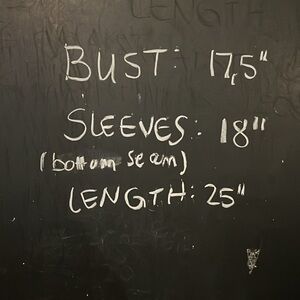 LENGTH
BUST: 17,5"
SLEEVES: 18"
(bottom seam)
LENGTH: 25"